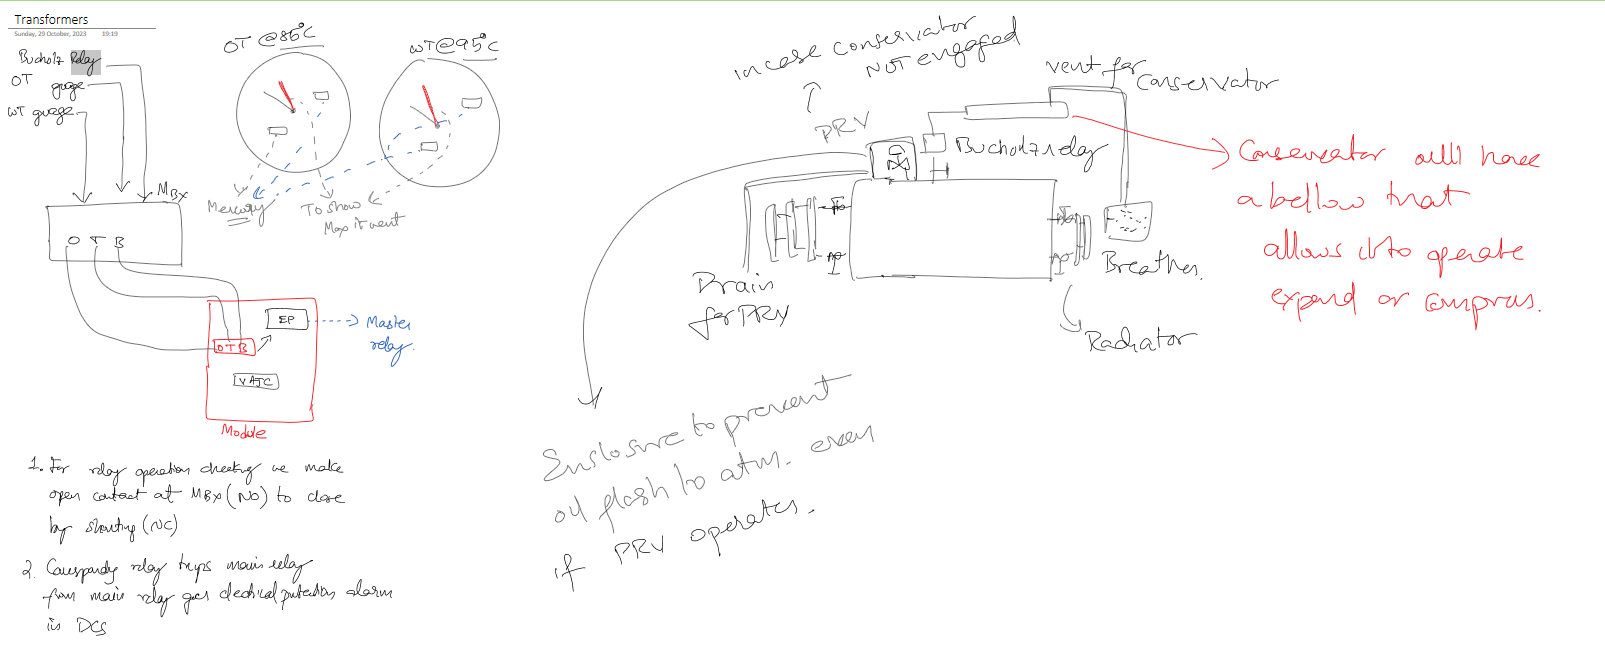 Transformers
Sunday, 29 October, 2023 19:19
Bucholz Relay
OT guage
WT guage
MBX
O T B
OT @ 85°C
WT @ 95°C
Mercury
To show
Max it went
EP
Master
relay.
OTB
VAJC
Module
1. For relay operation checking we make
open contact at MBX (NO) to close
by shorting (NC)
2. relay trips main relay
from main relay goes electrical protection alarm
in DCS
incase conservator
NOT engaged
PRV
vent for
Conservator
Bucholz relay
Drain
for PRV
Breather.
Radiator
Conservator will have
a bellow that
allows it to operate
expand or compress.
Enclosure to prevent
oil flash to atm. even
if PRV operates.